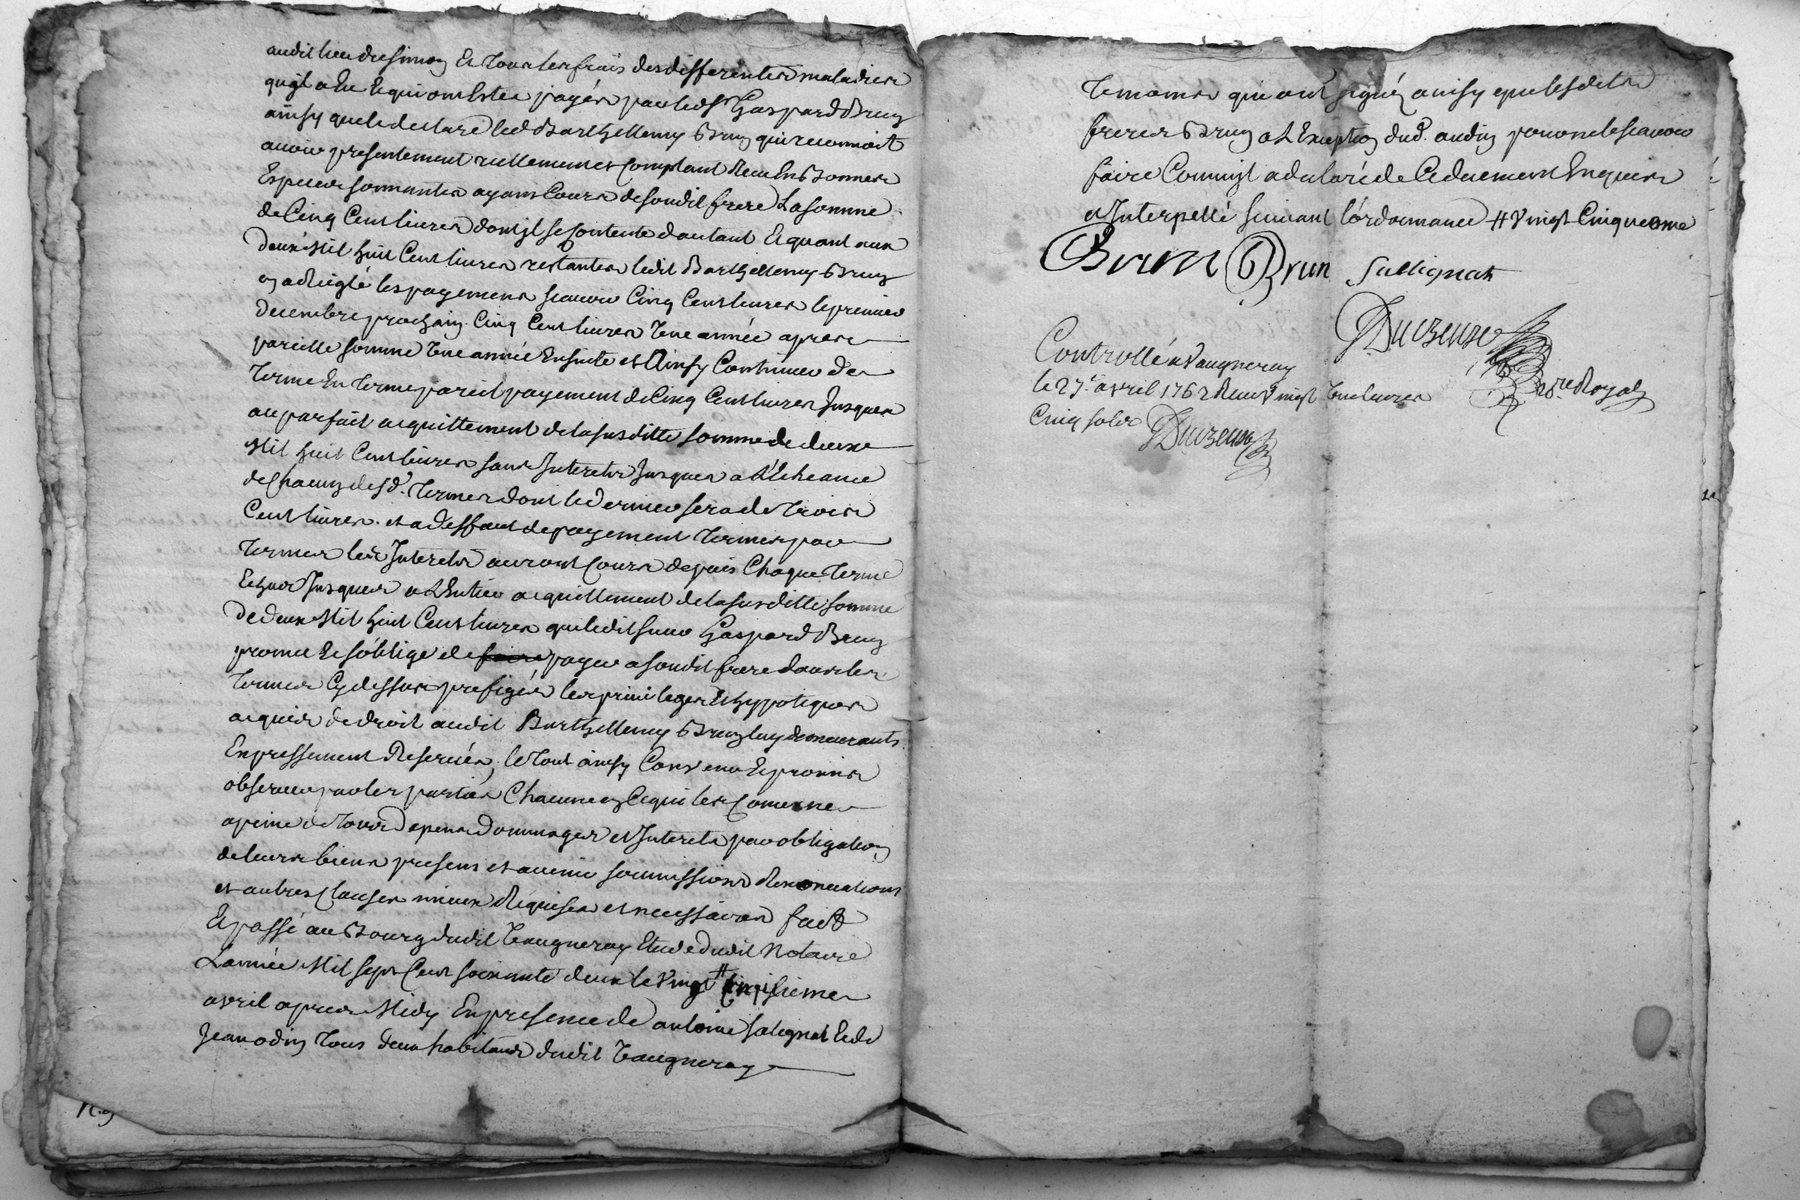 audit lieu de simon Et tous les frais des differentes maladies
quil a Eu Et qui ont Estés payés par led sr Gaspard Brun
ainsy que le declare led Barthellemy Brun qui reconnoit
avoir presentement reellement et comptant Receu En Bonnes
Especes sonnantes ayant Cours de sondit frere La somme
de Cinq Cent livres dont jl se contente d'autant Et quant aux
deux Mil huit Cent livres restantes ledit Barthellemy Brun
en a Reiglé les payements scavoir Cinq Cent livres le premier
decembre prochain Cinq Cent livres Une année apres
pareille somme Une année Ensuite et Ainsy Continuer de
Terme En Terme pareil payement de Cinq Cent livres Jusques
au parfait acquittement de la susditte somme de deux
Mil huit Cent livres sans Interets Jusques a L'Echeance
de Chacun desd. Termes dont le dernier sera de Trois
Cent livres. et a deffaut de payement Termes par
Termes les Interets auront Cours depuis Chaque Terme
Echeu Jusques a L'Entier acquittement de la susditte somme
De deux Mil huit Cent livres que ledit sieur Gaspard Brun
promet Et s'oblige de faire payer a sondit frere dans les
Termes Cy dessus prefigés les privileges Et hypoteques
acquis de droit audit Barthellemy Brun luy demeurants
Expressement Reservés, le Tout ainsy Convenu Et promis
observer par les parties Chacune en Ce qui les Concerne
a peine de Tous Depens Dommages et Interets par obligation
de leurs biens presens et avenir soumissions Renonciations
et autres Clauses mieux Requises et necessaires fait
Et passé au Bourg dudit Vaugneray Etude dudit Notaire
L'année Mil sept Cent soixante deux le Vingt #
avril apres Midy En presence de antoine salignat Et de
Jean odin Tous deux habitants dudit Vaugneray
Temoins qui ont signéz ainsy que lesdits
freres Brun a L'Exception dud. audin pour ne le scavoir
faire Comm'jl a declaré de Ce duement Enquis
et Interpellé suivant l'ordonnance # Vingt Cinquieme
Brun Brun sallignat
DuCreuse
no.re Royal
Controllé a Vaugneray
le 27e avril 1762 Receu Vingt Une livres
Cinq sols DuCreuse